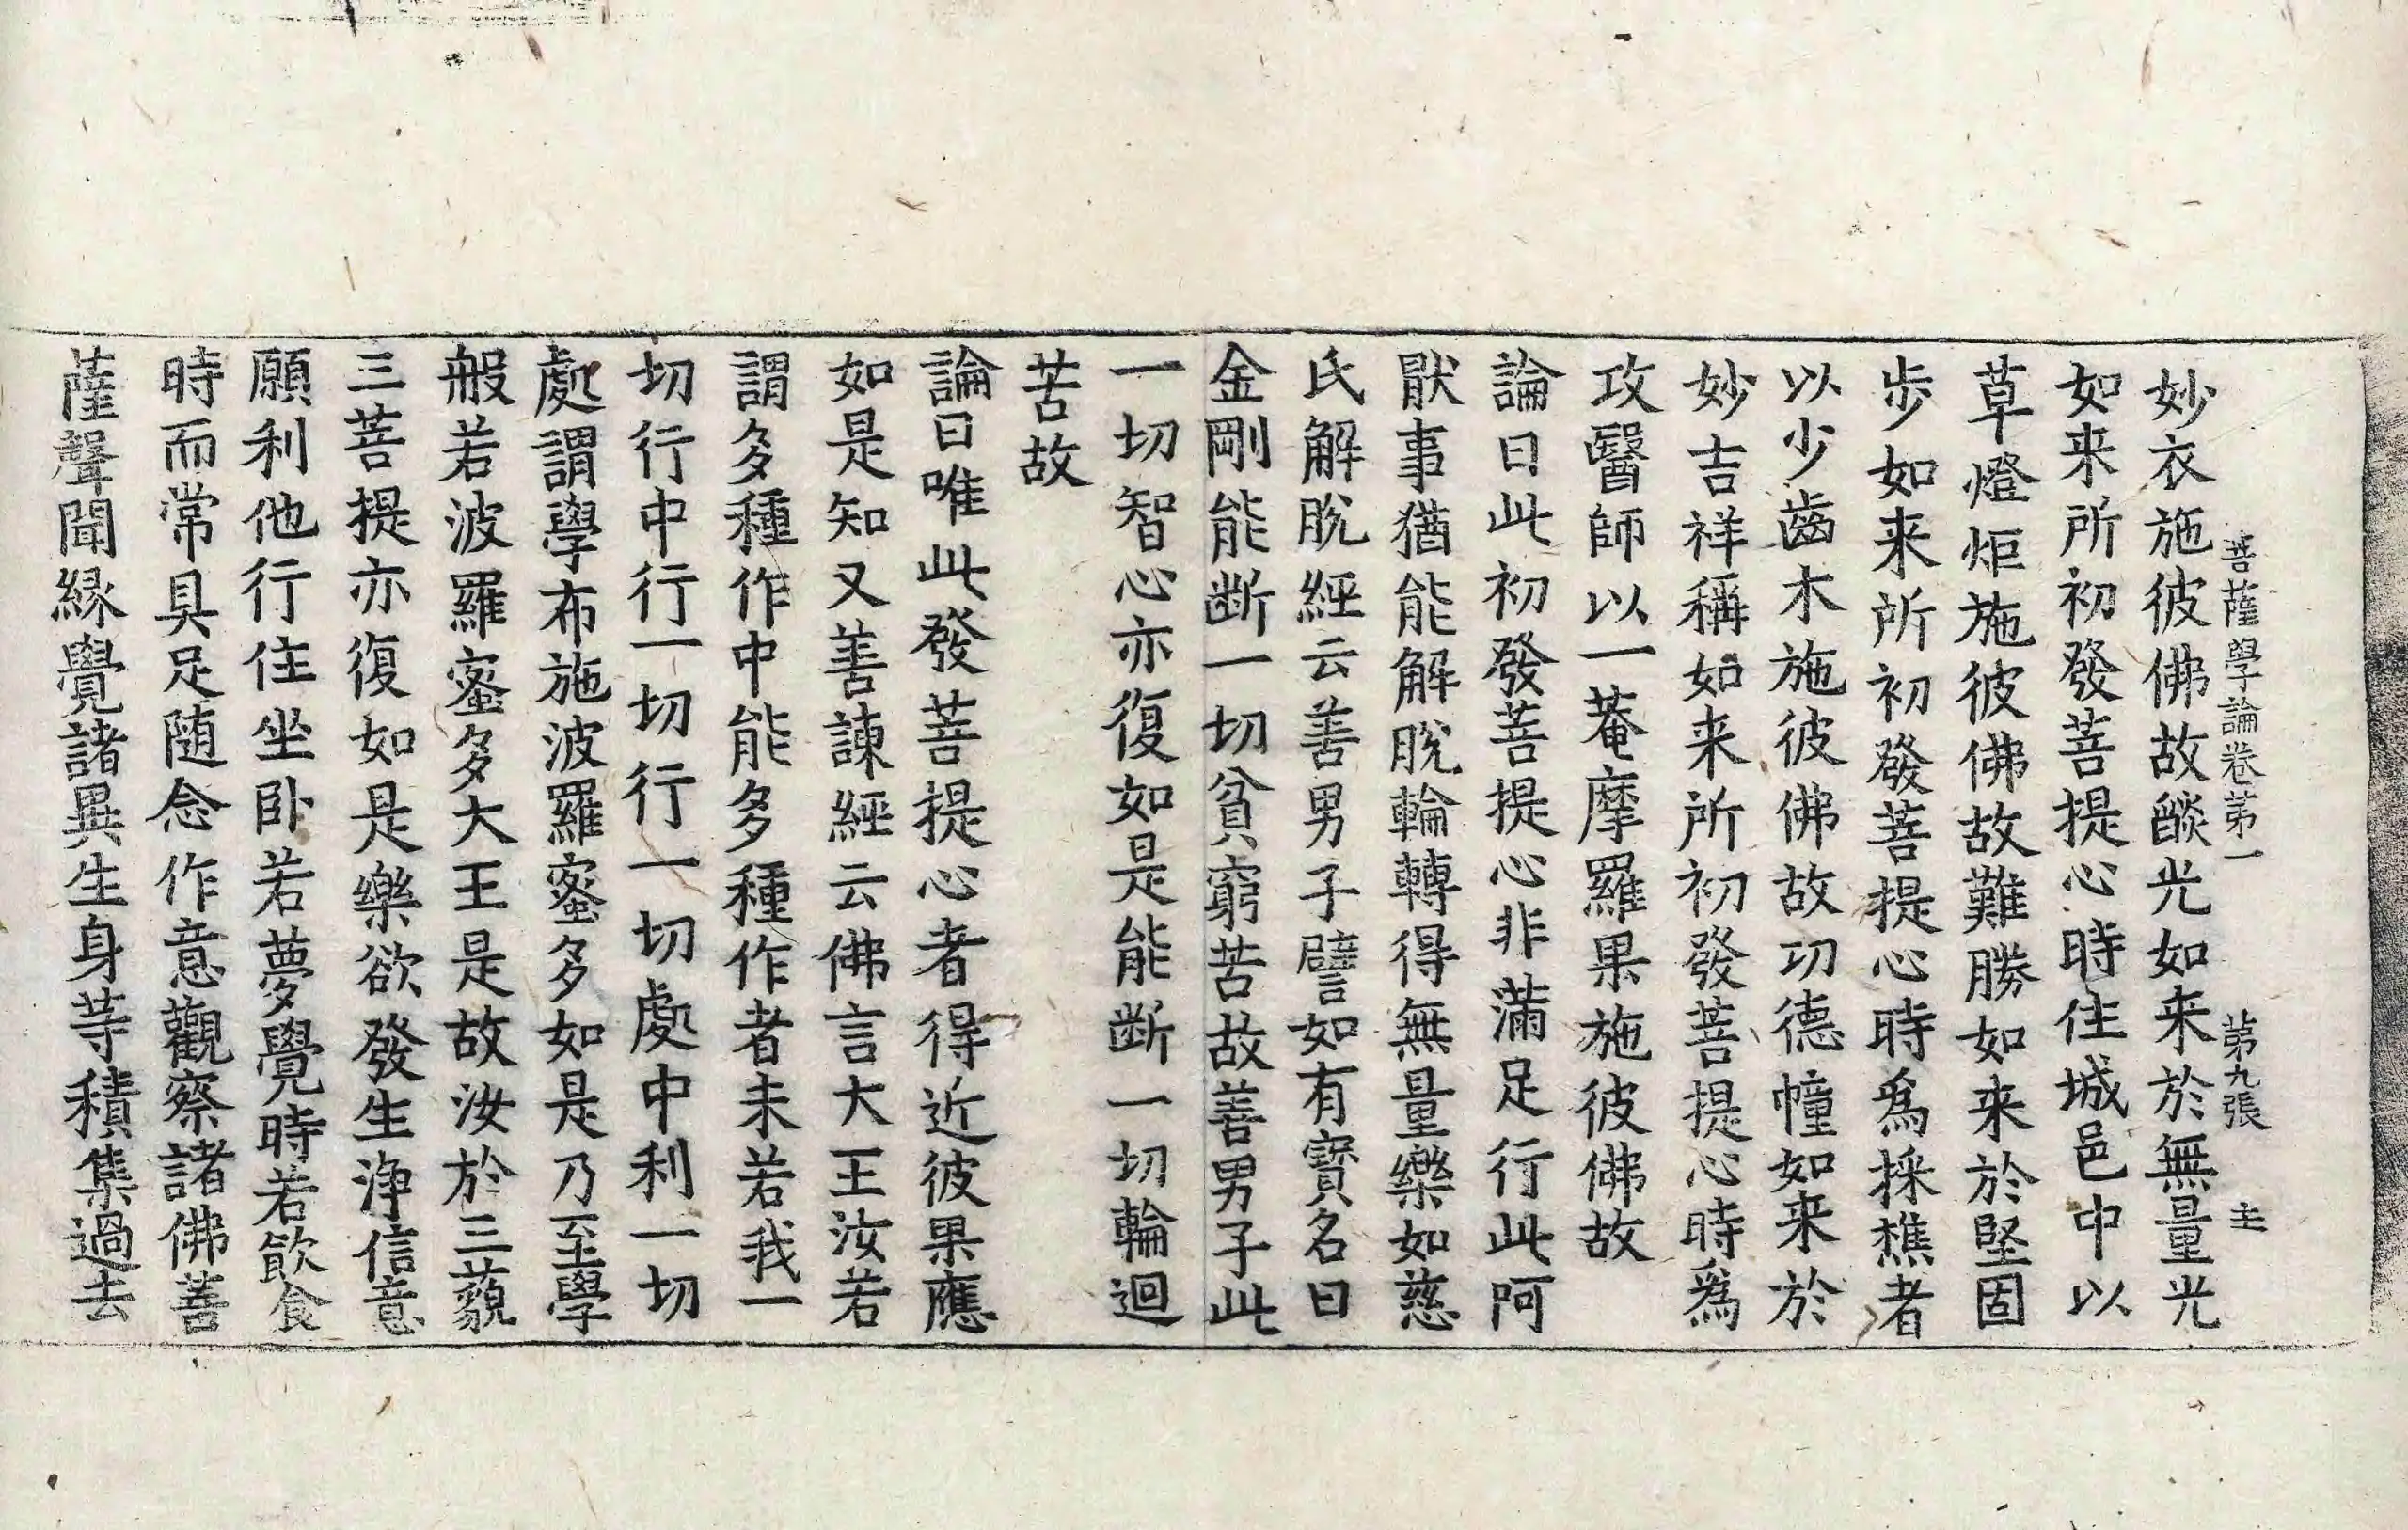 菩薩學論卷苐一 苐九張 主
妙衣施彼佛故燄光如来於無量光
如来所初發菩提心時住城邑中以
草燈炬施彼佛故難勝如来於堅固
歩如来所初發菩提心時爲採樵者
以少齒木施彼佛故功德幢如来於
妙吉祥稱如来所初發菩提心時爲
攻醫師以一菴摩羅果施彼佛故
論曰此初發菩提心非滿足行此阿
猒事猶能解脫輪轉得無量樂如慈
氏解脫經云善男子譬如有寶名曰
金剛能断一切貧窮苦故善男子此
一切智心亦復如是能断一切輪迴
苦故
論曰唯此發菩提心者得近彼果應
如是知又善諫經云佛言大王汝若
謂多種作中能多種作者未若我一
切行中行一切行一切處中利一切
處謂學布施波羅蜜多如是乃至學
般若波羅蜜多大王是故汝於三藐
三菩提亦復如是樂欲發生淨信意
願利他行住坐卧若夢覺時若飮食
時而常具足随念作意觀察諸佛菩
薩聲聞縁覺諸異生身等積集過去